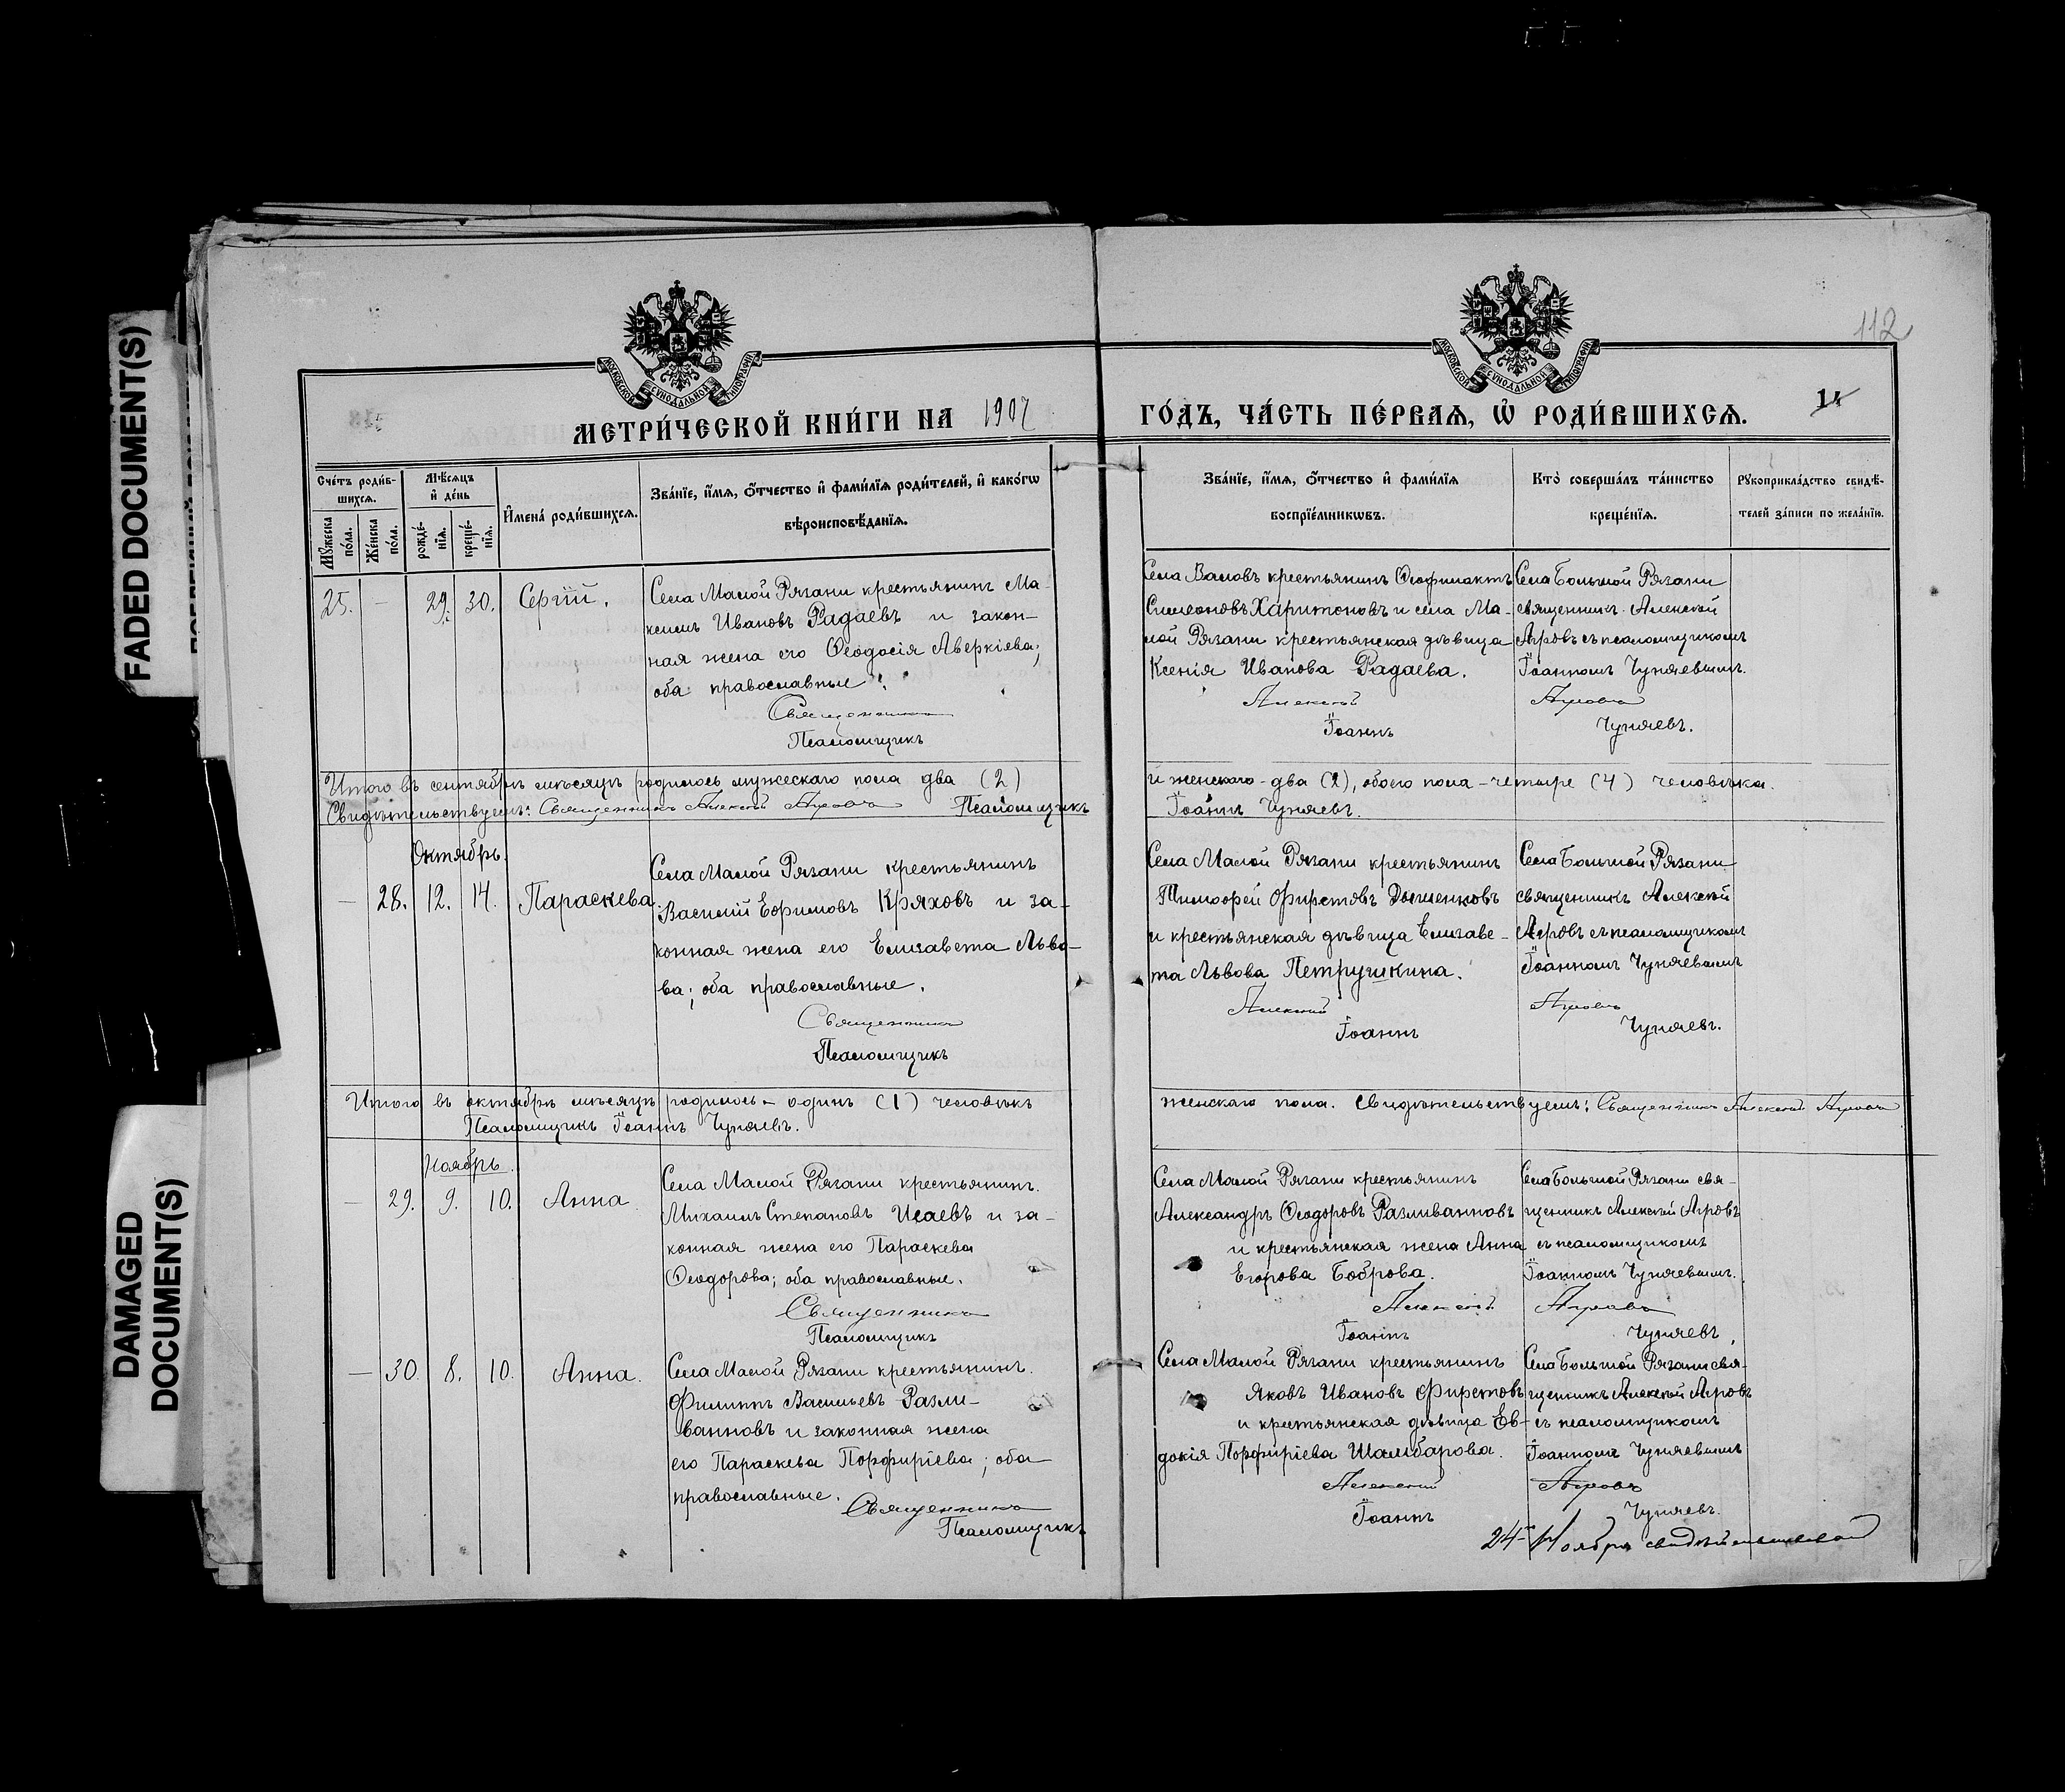 FADED DOCUMENT(S)
DAMAGED
DOCUMENT(S)
112
МОСКОВСКОЙ СУНОДАЛЬНОЙ ТИПОГРАФІИ
МОСКОВСКОЙ СУНОДАЛЬНОЙ ТИПОГРАФІИ
МЕТРИ́ЧЕСКОЙ КНИ́ГИ НА 1907 ГО́ДЪ, ЧА́СТЬ ПЕ́РВАѦ, Ѽ РОДИ́ВШИХСѦ.
Сче́тъ роди́в-
шихсѧ.
Мꙋ́жеска
по́ла.
Же́нска
по́ла.
Мѣ́сѧцъ
и҆ де́нь
рожде́-
нїѧ.
креще́-
нїѧ.
И҆мена̀ роди́вшихсѧ.
Зва́нїе, и҆́мѧ, ѻ҆́тчество и҆ фами́лїѧ роди́телей, и҆ како́гѡ
вѣроисповѣ́данїѧ.
Зва́нїе, и҆́мѧ, ѻ҆́тчество и҆ фами́лїѧ
воспрїе́мникѡвъ.
Кто̀ соверша́лъ та́инство
креще́нїѧ.
Рꙋкоприкла́дство свидѣ́-
телей за́писи по жела́нїю.
25. — 29. 30. Сергій.
Села Малой Рязани крестьянинъ Ма-
ксимъ Ивановъ Радаевъ и закон-
ная жена его Ѳеодосія Аверкіева;
оба православные.
Священникъ
Псаломщикъ
Села Валовъ крестьянинъ Ѳеофилактъ
Симеоновъ Харитоновъ и села Ма-
лой Рязани крестьянская дѣвица
Ксенія Иванова Радаева.
Алексій
Іоаннъ
Села Большой Рязани
священникъ Алексій
Агровъ съ псаломщикомъ
Іоанномъ Чуняевымъ.
Агровъ
Чуняевъ.
Итого въ сентябрѣ мѣсяцѣ родилось мужескаго пола два (2) и женскаго - два (2), обоего пола - четыре (4) человѣка.
Свидѣтельствуемъ: Священникъ Алексій Агровъ Псаломщикъ Іоаннъ Чуняевъ.
Октябрь.
— 28. 12. 14. Параскева.
Села Малой Рязани крестьянинъ
Василій Ефимовъ Кряховъ и за-
конная жена его Елизавета Льво-
ва; оба православные.
Священникъ
Псаломщикъ
Села Малой Рязани крестьянинъ
Тимоѳей Фирстовъ
и крестьянская дѣвица Елизаве-
та Львова Петрушкина.
Алексій
Іоаннъ
Села Большой Рязани
священникъ Алексій
Агровъ съ псаломщикомъ
Іоанномъ Чуняевымъ
Агровъ
Чуняевъ.
Итого въ октябрѣ мѣсяцѣ родилось - одинъ (1) человѣкъ женскаго пола. Свидѣтельствуемъ: Священникъ Алексій Агровъ
Псаломщикъ Іоаннъ Чуняевъ.
Ноябрь.
— 29. 9. 10. Анна
Села Малой Рязани крестьянинъ
Михаилъ Степановъ Исаевъ и за-
конная жена его Параскева
Ѳеодорова; оба православные.
Священникъ
Псаломщикъ
Села Малой Рязани крестьянинъ
Александръ Ѳеодоровъ Разливанновъ
и крестьянская жена Анна
Егорова Боброва.
Алексій
Іоаннъ
Села Большой Рязани свя-
щенникъ Алексій Агровъ
съ псаломщикомъ
Іоанномъ Чуняевымъ.
Агровъ
Чуняевъ.
— 30. 8. 10. Анна.
Села Малой Рязани крестьянинъ
Филиппъ Васильевъ Разли-
ванновъ и законная жена
его Параскева Порфиріева; оба
православные.
Священникъ
Псаломщикъ
Села Малой Рязани крестьянинъ
Яковъ Ивановъ Фирстовъ
и крестьянская дѣвица Ев-
докія Порфиріева Шалибарова.
Алексій
Іоаннъ
Села Большой Рязани свя-
щенникъ Алексій Агровъ
съ псаломщикомъ
Іоанномъ Чуняевымъ
Агровъ
Чуняевъ.
24 Ноября